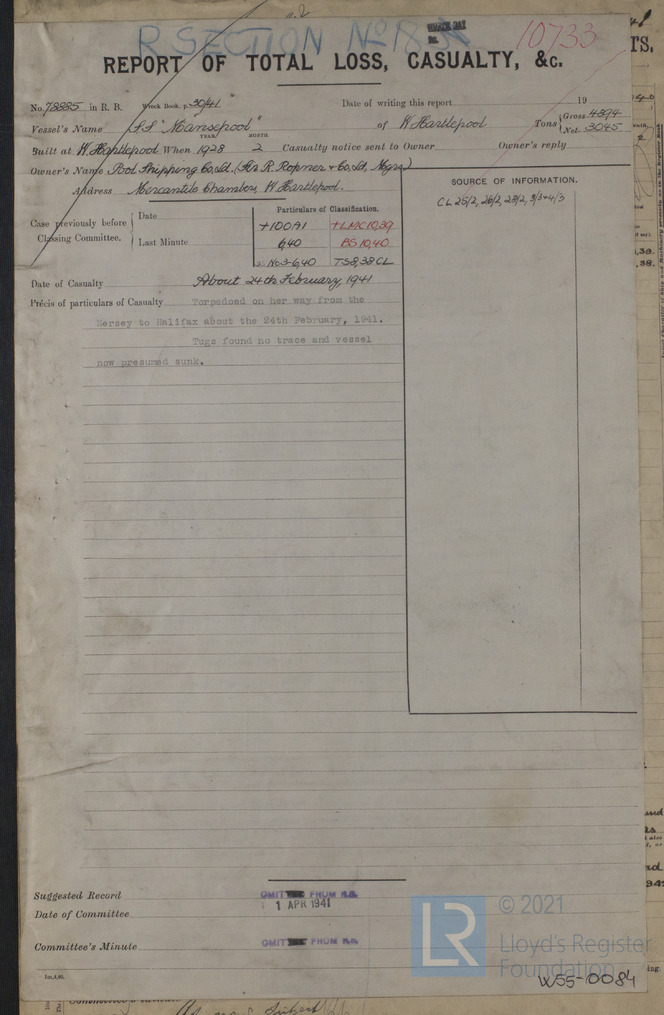 R SECTION No
10733
REPORT OF TOTAL LOSS, CASUALTY, &c.
No. 78885 in R. B. Wreck Book, p. 30/41 Date of writing this report 19
Vessel's Name S.S. "Mansepool" of W. Hartlepool Tons { Gross 4894
Net 3045
YEAR MONTH
Built at W. Hartlepool When 1928 2 Casualty notice sent to Owner Owner's reply
Owner's Name Pool Shipping Co. Ld. (Sir R. Ropner & Co. Ld, Mgrs.)
Address Mercantile Chambers, W. Hartlepool.
SOURCE OF INFORMATION.
CL 25/2, 26/2, 28/2, 3/3 + 4/3
Case previously before Classing Committee. { Date
Last Minute
Particulars of Classification.
+100A1 +LMC 10,39
6,40 BS 10,40
No. 3-6,40 TS 8,38 CL
Date of Casualty About 24th February, 1941
Précis of particulars of Casualty Torpedoed on her way from the
Mersey to Halifax about the 24th February, 1941.
Tugs found no trace and vessel
now presumed sunk.
Suggested Record OMIT FROM R.B.
Date of Committee 1 APR 1941
Committee's Minute OMIT FROM R.B.
© 2021
LR
Lloyd's Register
Foundation
W55-0084